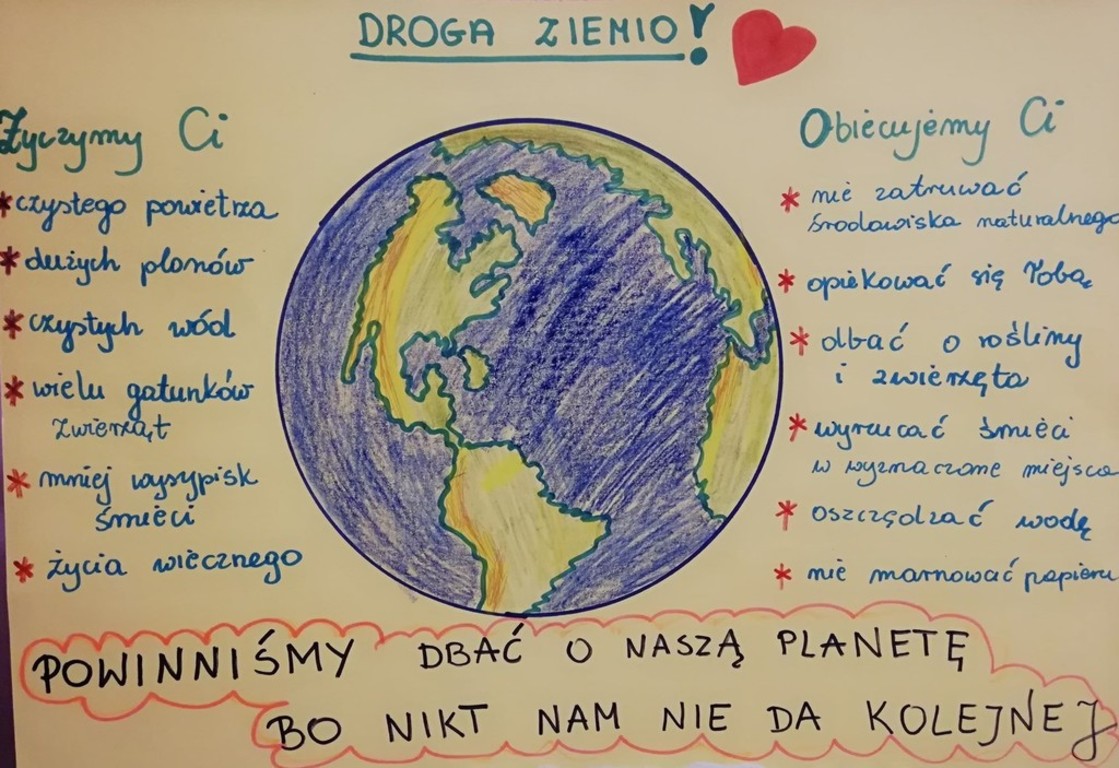 DROGA ZIEMIO!
Życzymy Ci
* czystego powietrza
* dużych plonów
* czystych wód
* wielu gatunków
zwierząt
* mniej wysypisk
śmieci
* życia wiecznego
Obiecujemy Ci
* nie zatruwać
środowiska naturalnego
* opiekować się Tobą
* dbać o rośliny
i zwierzęta
* wyrzucać śmieci
w wyznaczone miejsca
* oszczędzać wodę
* nie marnować papieru
POWINNIŚMY DBAĆ O NASZĄ PLANETĘ
BO NIKT NAM NIE DA KOLEJNEJ